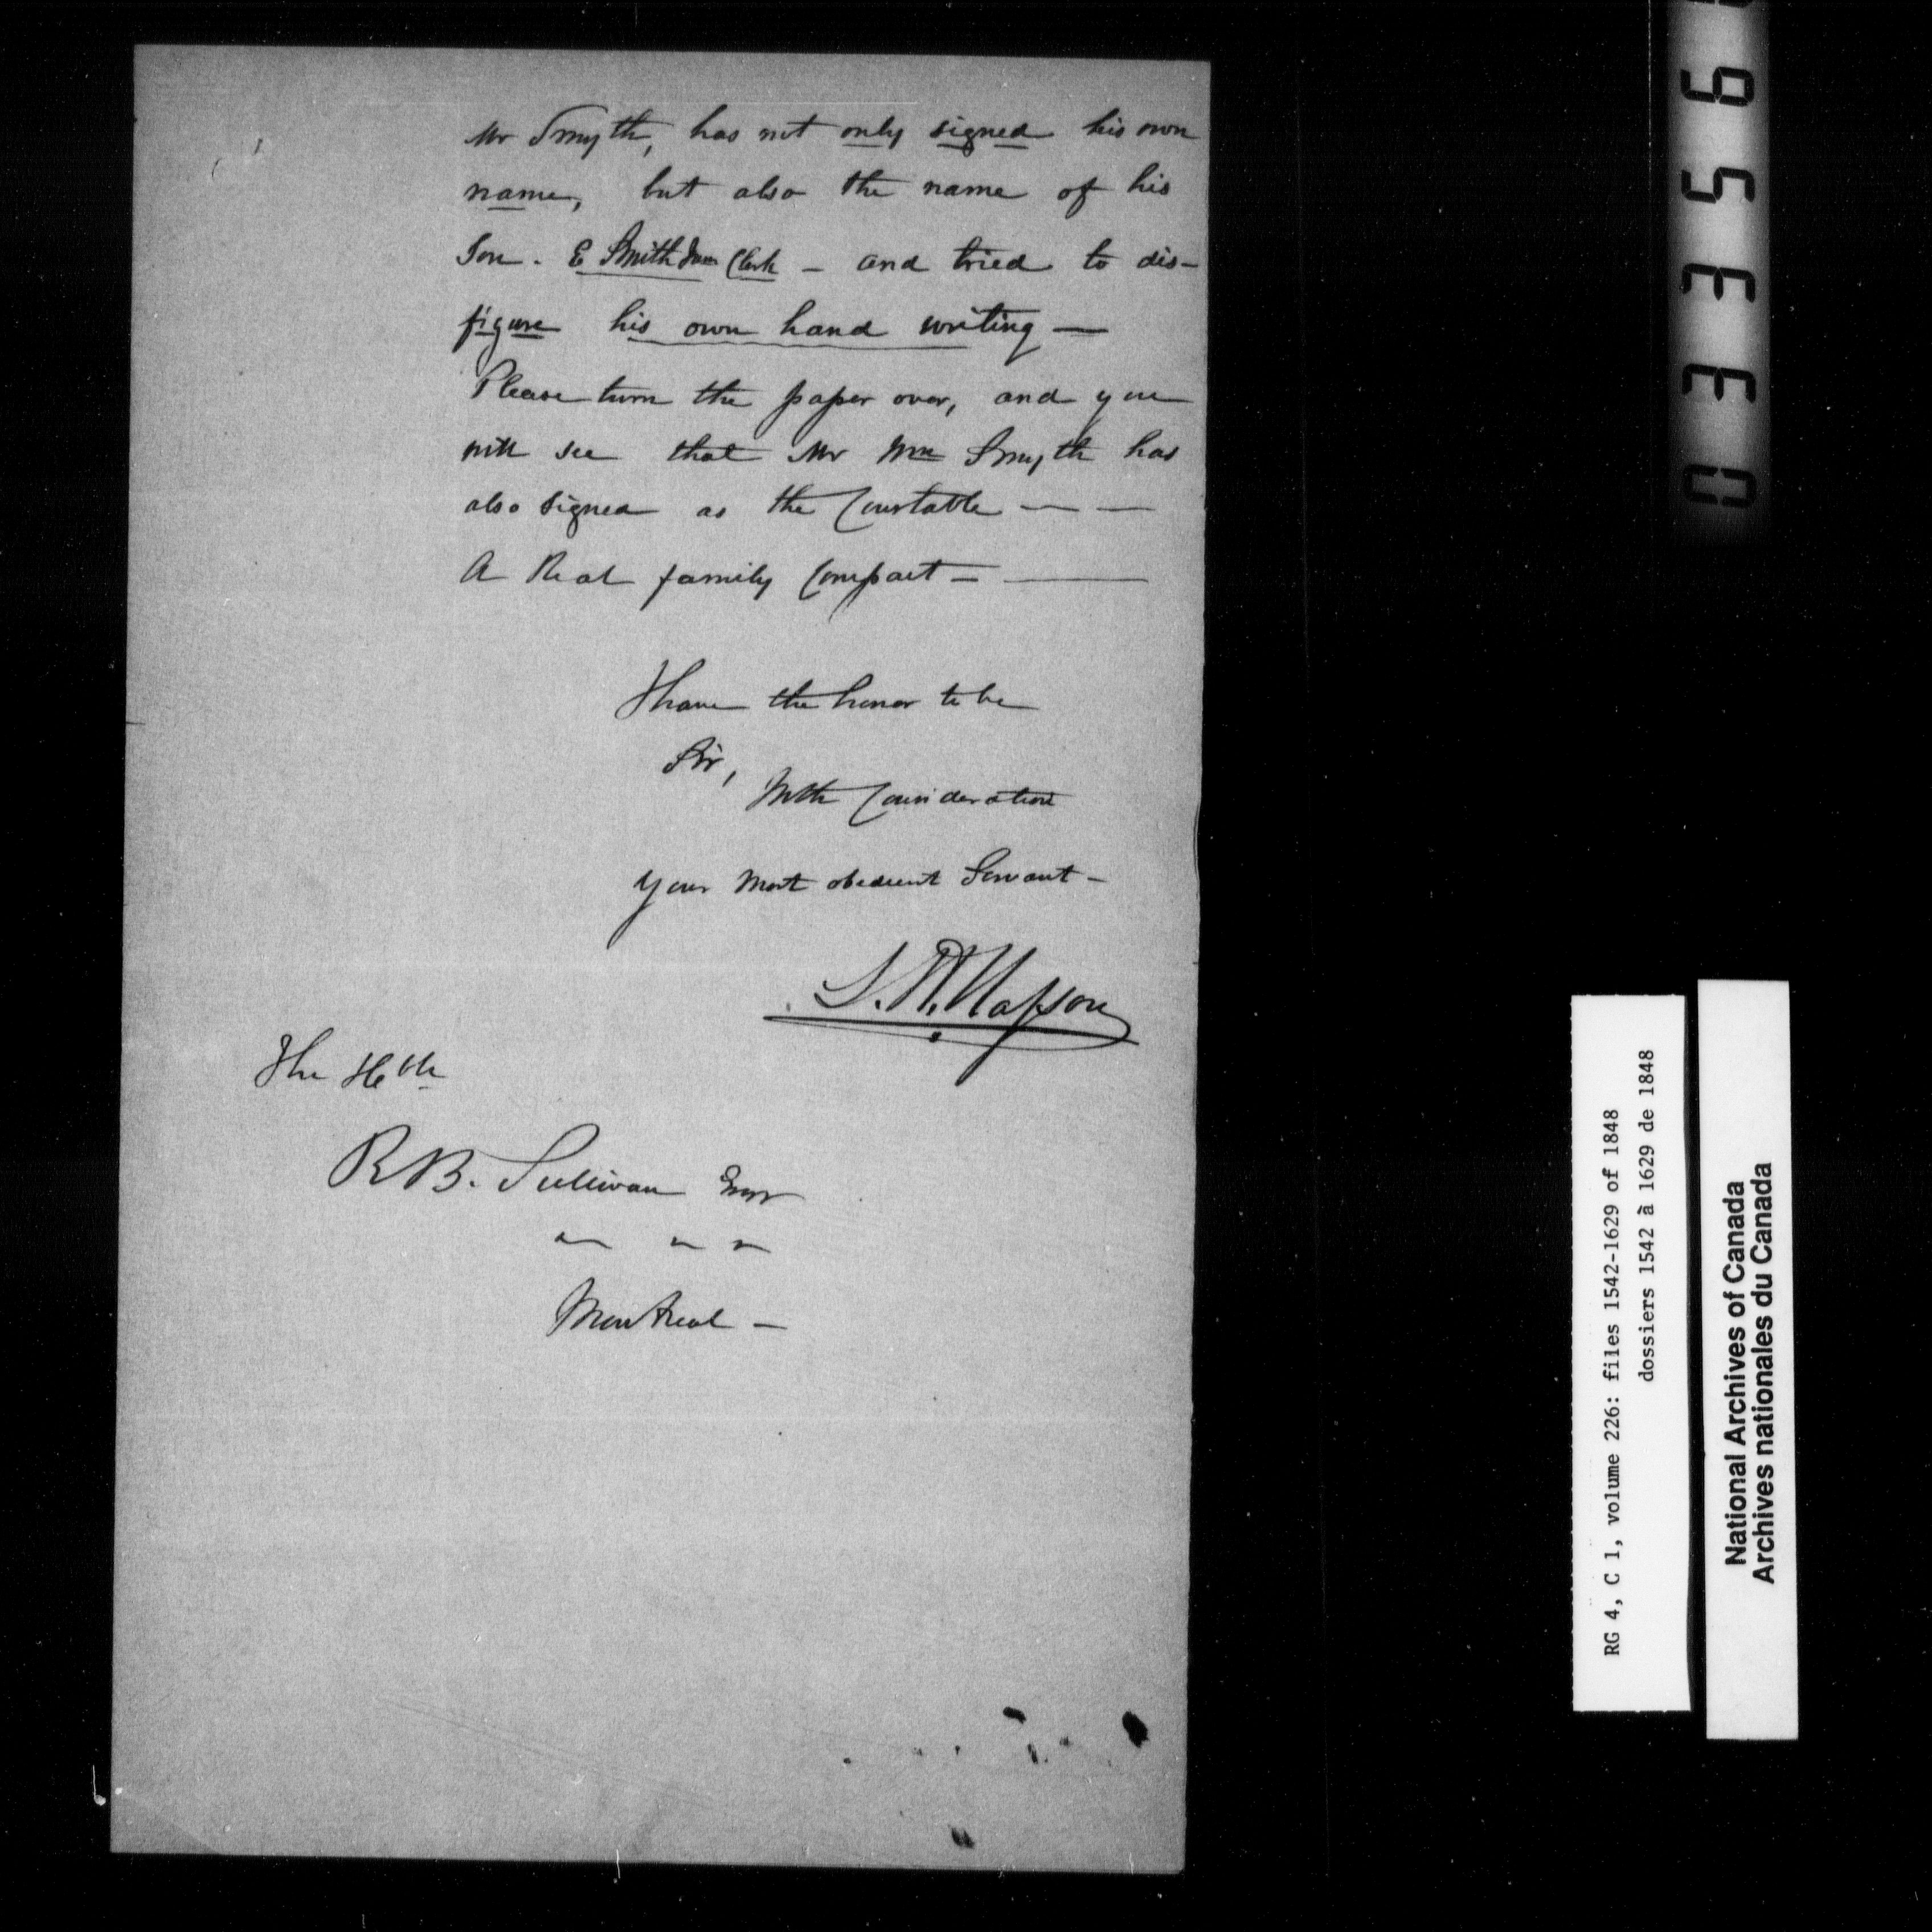 Mr Smyth, has not only signed his own
name, but also the name of his
Son. E Smith Jun Clerk – and tried to dis-
figure his own hand writing —
Please turn the paper over, and you
will see that Mr Wm Smyth has
also signed as the Constable — —
A Real family Compact – —
I have the honor to be
Sir,
With Consideration
Your Most obedient Servant –
The Hble
R B. Sullivan Esqr
Montreal –
0 3 3 5 6
RG 4, C 1, volume 226: files 1542-1629 of 1848
dossiers 1542 à 1629 de 1848
National Archives of Canada
Archives nationales du Canada